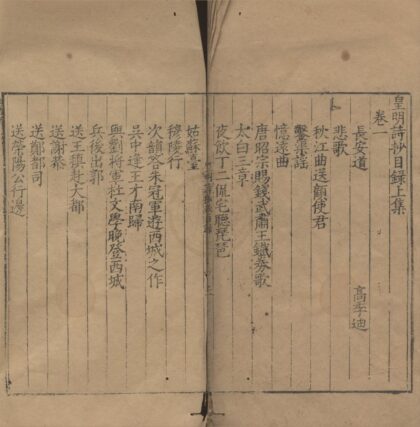 皇明詩抄目錄上集
卷一
長安道 高季迪
悲歌
秋江曲送顧使君
鑿渠謡
憶遠曲
唐昭宗賜錢武肅王鐵券歌
太白三章
夜飲丁二侃宅聽琵琶
姑蘇臺
穆陵行
次韻答朱冠軍遊西城之作
吳中逢王才南歸
與劉將軍杜文學晚登西城
兵後出郭
送王稹赴大都
送謝恭
送鄭都司
送滎陽公行邊